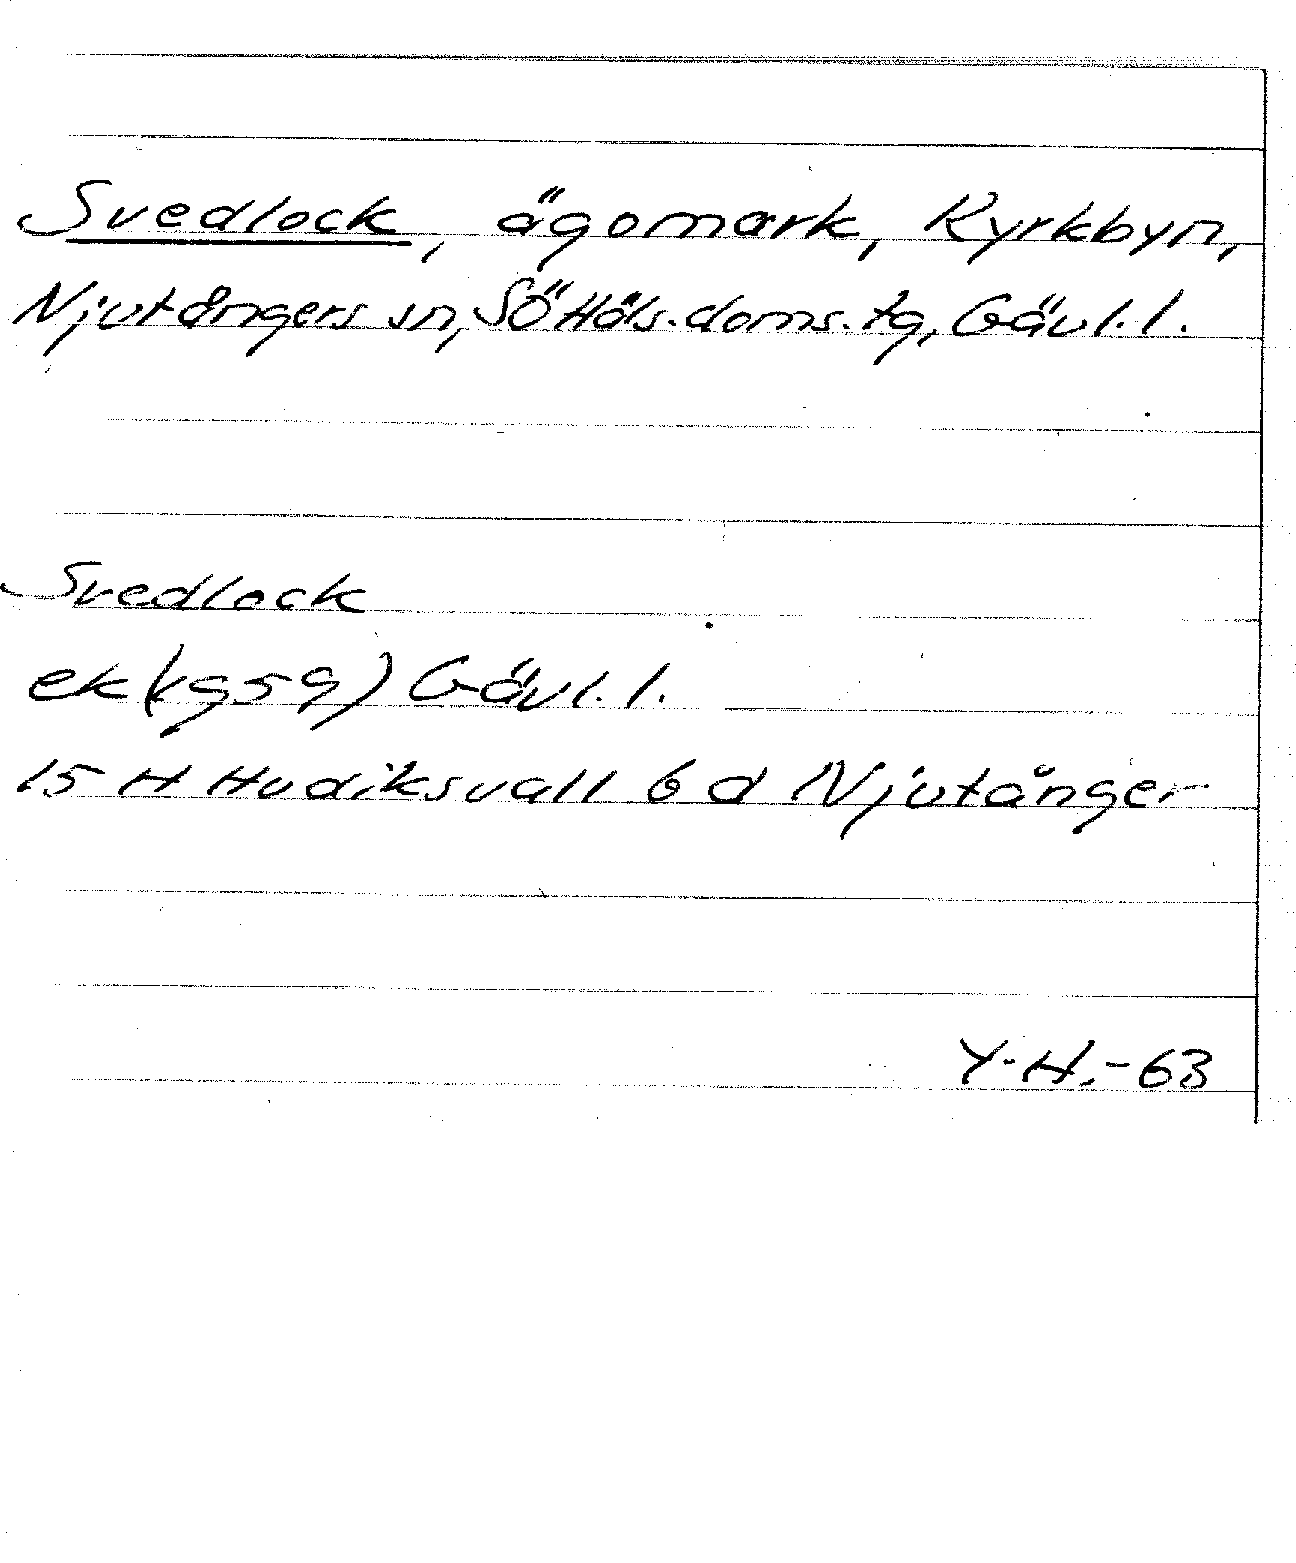 Svedlock, ägomark, Kyrkbyn,
Njutångers sn, SÖ Häls. doms. tg, Gävl. l.
Svedlock
ek (1959) Gävl. l.
15 H Hudiksvall 6 d Njutånger
Y.H.-63